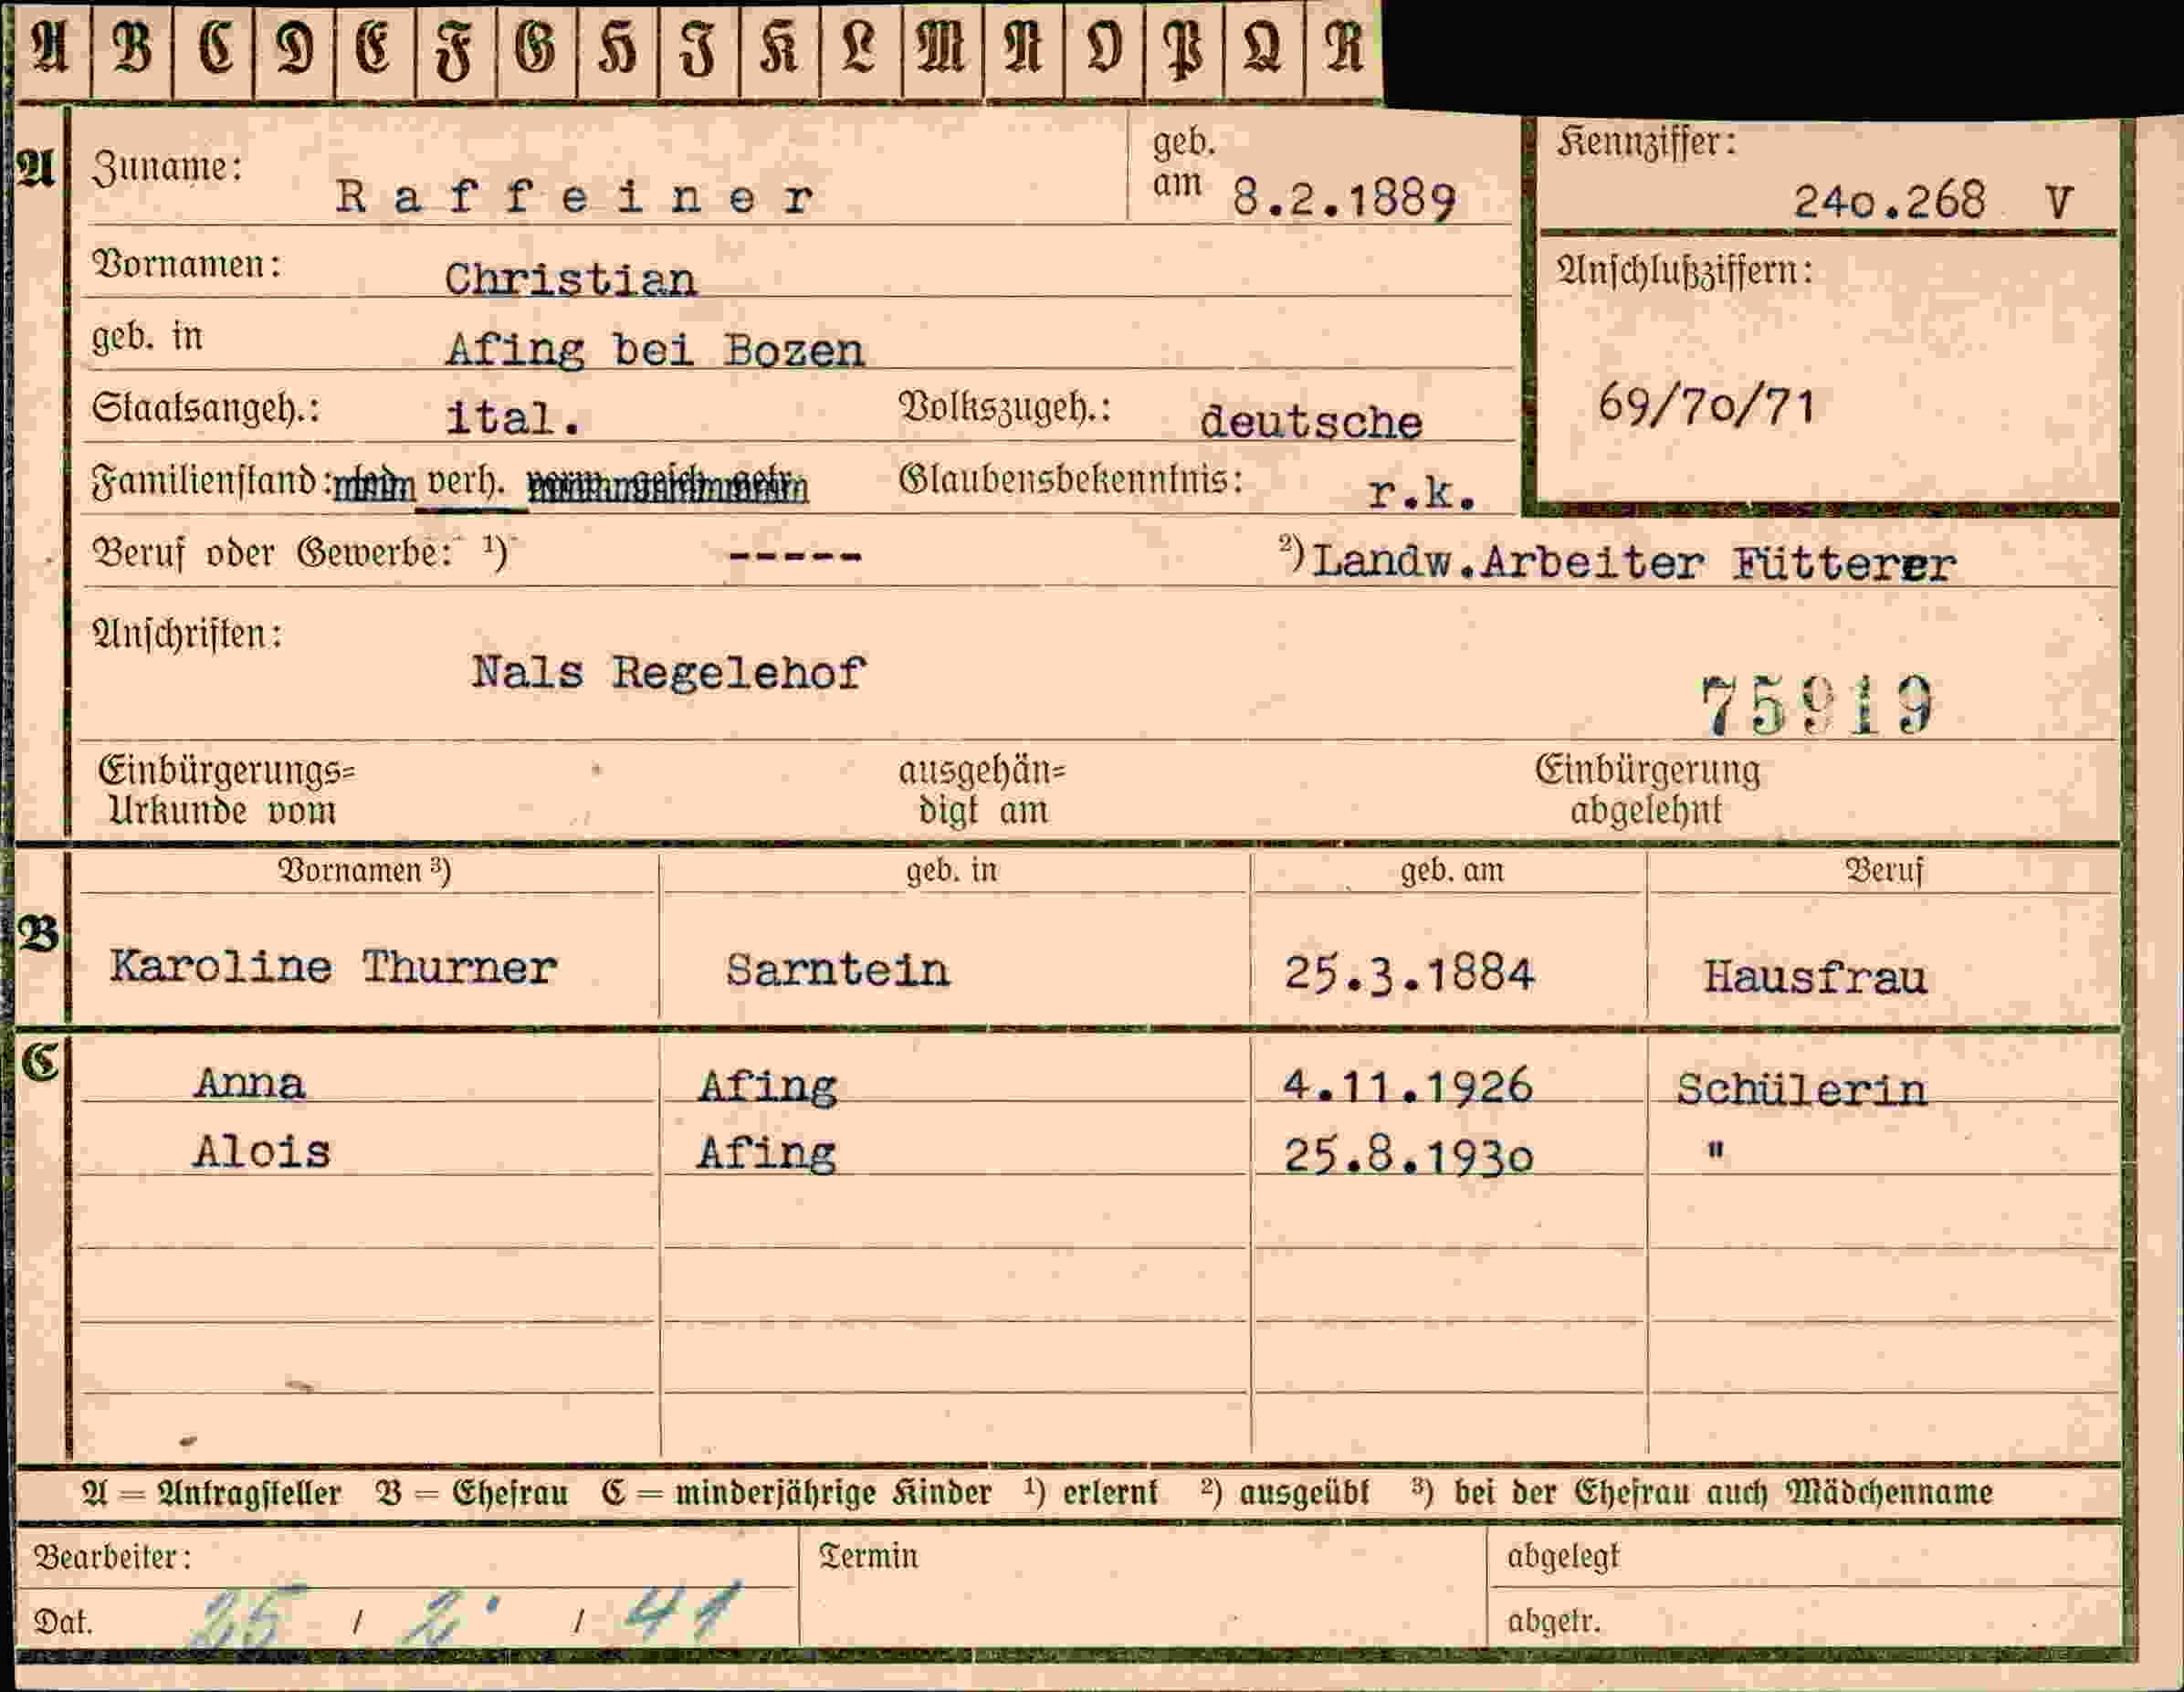 A B C D E F G H I K L M N O P Q R
A Zuname: Raffeiner geb. am 8.2.1889 Kennziffer: 240.268 V
Vornamen: Christian Anschlußziffern:
geb. in Afing bei Bozen
Staatsangeh.: ital. Volkszugeh.: deutsche 69/70/71
Familienstand: verh. Glaubensbekenntnis: r.k.
Beruf oder Gewerbe: ¹) ----- ²) Landw.Arbeiter Fütterer
Anschriften: Nals Regelehof 75919
Einbürgerungs= ausgehän= Einbürgerung
Urkunde vom digt am abgelehnt
Vornamen ³) geb. in geb. am Beruf
B Karoline Thurner Sarntein 25.3.1884 Hausfrau
C Anna Afing 4.11.1926 Schülerin
Alois Afing 25.8.1930 "
A = Antragsteller B = Ehefrau C = minderjährige Kinder ¹) erlernt ²) ausgeübt ³) bei der Ehefrau auch Mädchenname
Bearbeiter: Termin abgelegt
Dat. 25 / 2. / 41 abgetr.